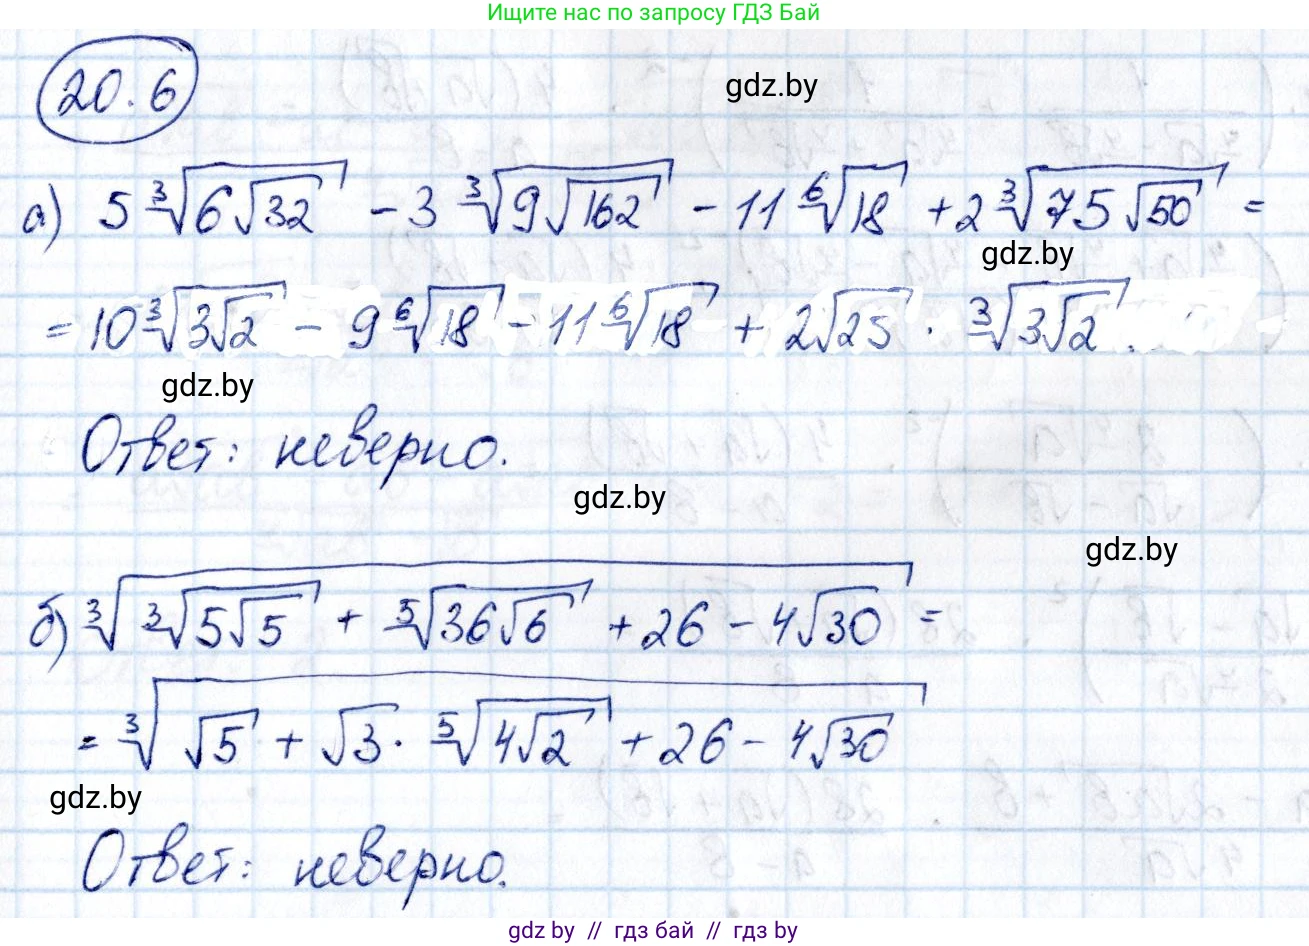 Ищите нас по запросу ГДЗ Бай
20.6
gdz.by
а) 5∛(6√32) - 3∛(9√162) - 11⁶√18 + 2∛(75√50) =
gdz.by
= 10∛(3√2) - 9⁶√18 - 11⁶√18 + 2√25 · ∛(3√2)
gdz.by
Ответ: неверно.
gdz.by
gdz.by
б) ∛(∛(5√5) + ⁵√(36√6) + 26 - 4√30) =
= ∛(√5 + √3 · ⁵√(4√2) + 26 - 4√30)
gdz.by
Ответ: неверно.
gdz.by // гдз бай // гдз by